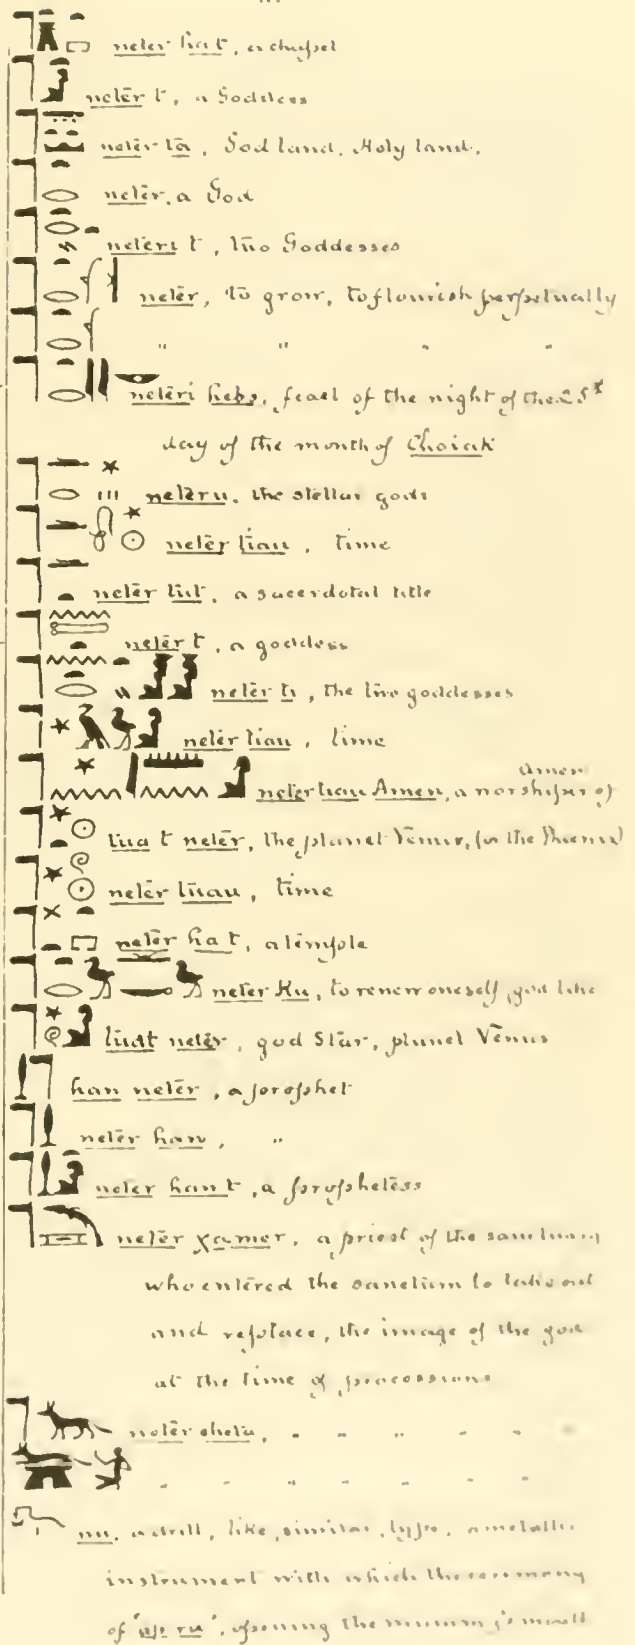 neter hat, a chapel
neter t, a Goddess
neter ta, God land, Holy land,
neter, a God
neteri t, two Goddesses
neter, to grow, to flourish perpetually
" " " "
neteri hebs, feast of the night of the 25th
day of the month of Choiak
neteru, the stellar gods
neter tiau, time
neter tut, a sacerdotal title
neter t, a goddess
neter ti, the two goddesses
neter tiau, time
neter tuau Amen, a worshiper of Amen
tua t neter, the planet Venus, (or the Phoenix)
neter tuau, time
neter hat, a temple
neter Ku, to renew oneself, god like
tuat neter, god Star, planet Venus
han neter, a prophet
neter han, "
neter han t, a prophetess
neter χamer, a priest of the sanctuary
who entered the sanctum to take out
and replace, the image of the god
at the time of processions
neter sheta, " " " " "
" " " " " "
nu, a drill, like, similar, type, a metallic
instrument with which the ceremony
of "ap ru", opening the mummy's mouth